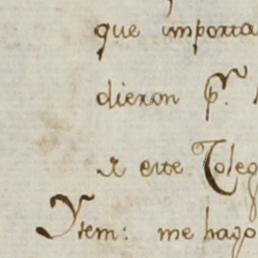 que importa
dieron pr.
a este Coleg
Ytem: me hago